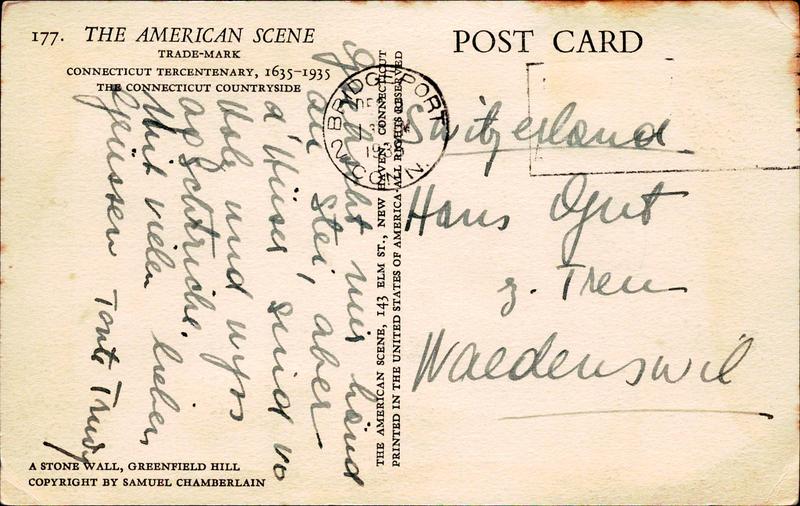 177. THE AMERICAN SCENE
TRADE-MARK
CONNECTICUT TERCENTENARY, 1635–1935
THE CONNECTICUT COUNTRYSIDE
mir händ
au Stei, aber
d'Hüser sind vo
Holz und wyss
agstriche.
Mit vielen lieben
Grüssen Tante Trudy
A STONE WALL, GREENFIELD HILL
COPYRIGHT BY SAMUEL CHAMBERLAIN
THE AMERICAN SCENE, 143 ELM ST., NEW HAVEN, CONNECTICUT
PRINTED IN THE UNITED STATES OF AMERICA-ALL RIGHTS RESERVED
POST CARD
BRIDGEPORT 2
CONN.
Switzerland
Hans
z. Treu
Waedenswil